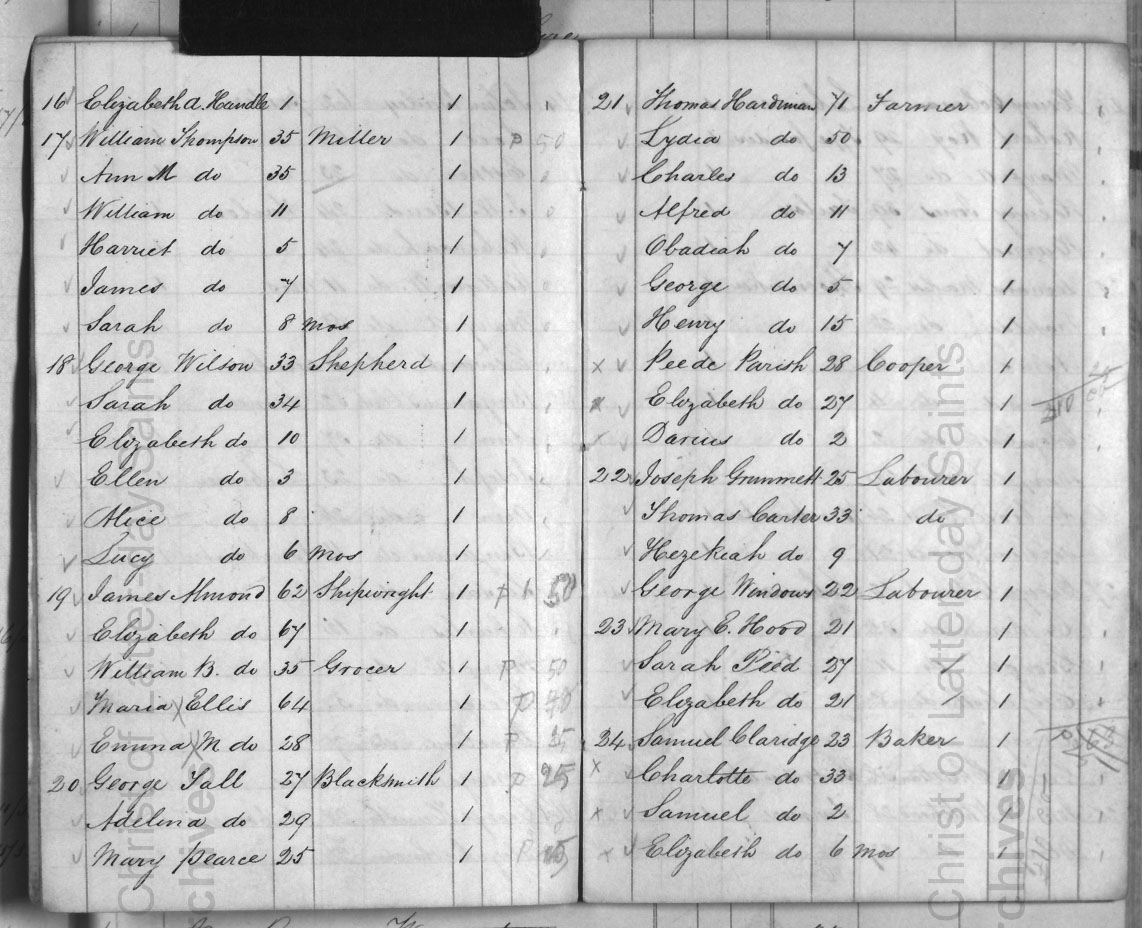 16 Elizabeth A. Handle 1 1
17 William Thompson 35 Miller 1 P 50
Ann M do 35 1
William do 11 1
Harriet do 5 1
James do 7 1
Sarah do 8 mos 1
18 George Wilson 33 Shepherd 1
Sarah do 34 1
Elizabeth do 10 1
Ellen do 3 1
Alice do 8 1
Lucy do 6 mos 1
19 James Almond 62 Shipwright 1 P 50
Elizabeth do 67 1
William B. do 35 Grocer 1 P 50
Maria Ellis 64 1 P
Emma M do 28 1 P
20 George Tall 27 Blacksmith 1 P 25
Adelina do 29 1
Mary Pearce 25 1 P
21 Thomas Hardiman 71 Farmer 1
Lydia do 50 1
Charles do 13 1
Alfred do 11 1
Obadiah do 7 1
George do 5 1
Henry do 15 1
x Peede Parish 28 Cooper 1
x Elizabeth do 27 1
x Darius do 2 1
22 Joseph Grummett 25 Labourer 1
Thomas Carter 33 do 1
Hezekiah do 9 1
George Windows 22 Labourer 1
23 Mary E. Hood 21 1
Sarah Pied 27 1
Elizabeth do 21 1
24 Samuel Claridge 23 Baker 1
x Charlotte do 33 1
x Samuel do 2 1
x Elizabeth do 6 mos 1
Christ of Latter-day Saints
rchives
Christ of Latter-day Saints
rchives